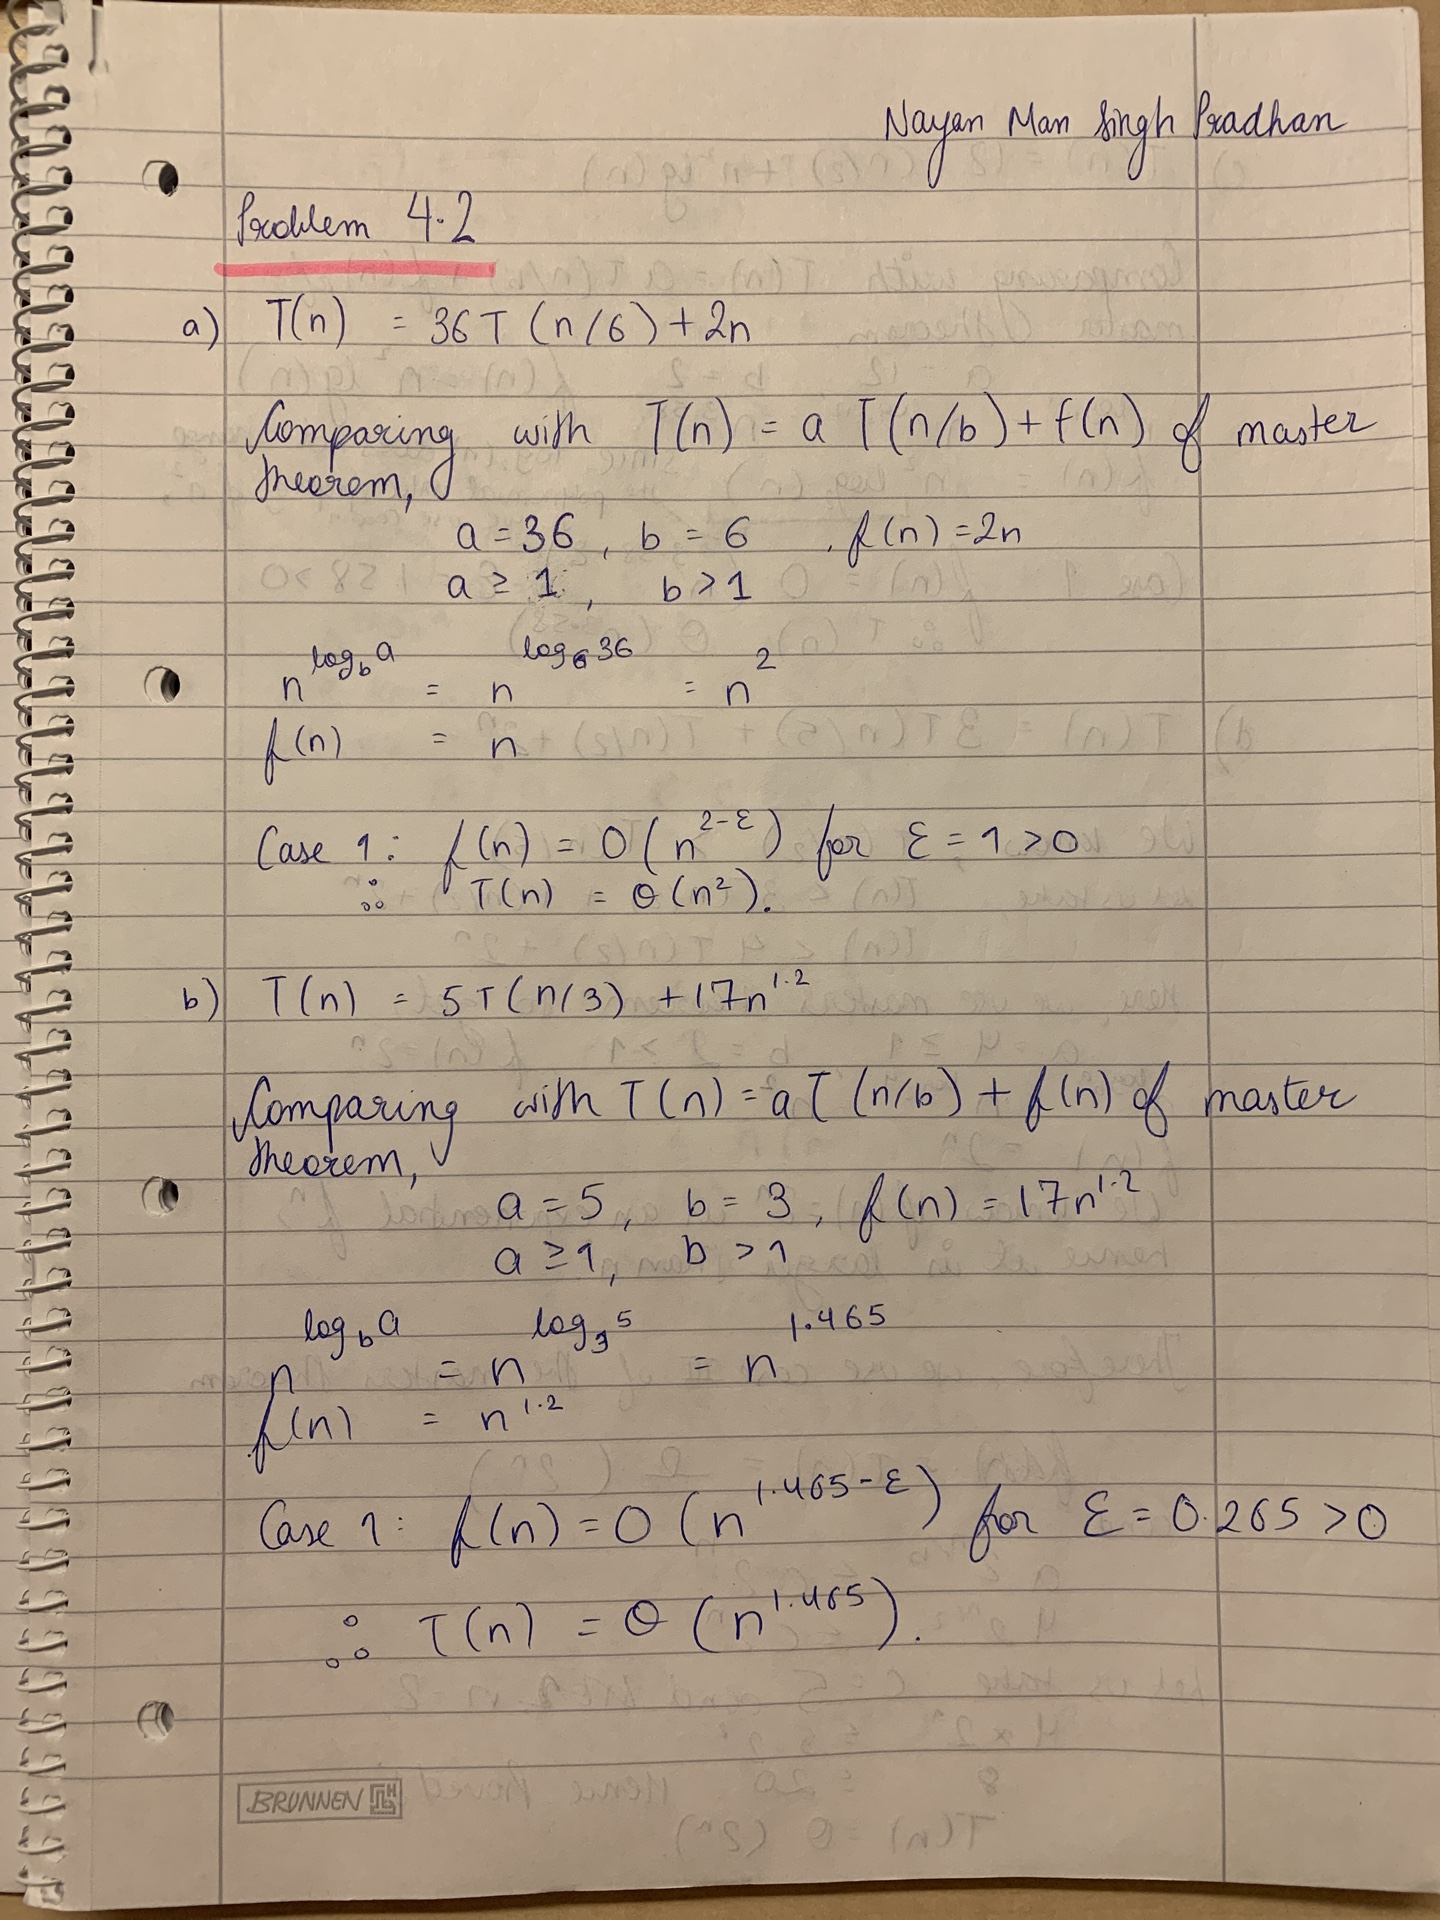 Nayan Man Singh Pradhan
Problem 4.2
a) T(n) = 36T(n/6)+2n
Comparing with T(n) = a T(n/b)+f(n) of master
theorem,
a = 36, b = 6, f(n)=2n
a ≥ 1, b > 1
n^{log_b a} = n^{log_6 36} = n^2
f(n) = n
Case 1: f(n) = O(n^{2-ε}) for ε = 1 > 0
∴ T(n) = θ(n²).
b) T(n) = 5T(n/3) + 17n^{1.2}
Comparing with T(n) = a T(n/b) + f(n) of master
theorem,
a = 5, b = 3, f(n) = 17n^{1.2}
a ≥ 1, b > 1
n^{log_b a} = n^{log_3 5} = n^{1.465}
f(n) = n^{1.2}
Case 1: f(n) = O(n^{1.465-ε}) for ε = 0.265 > 0
∴ T(n) = θ(n^{1.465}).
BRUNNEN